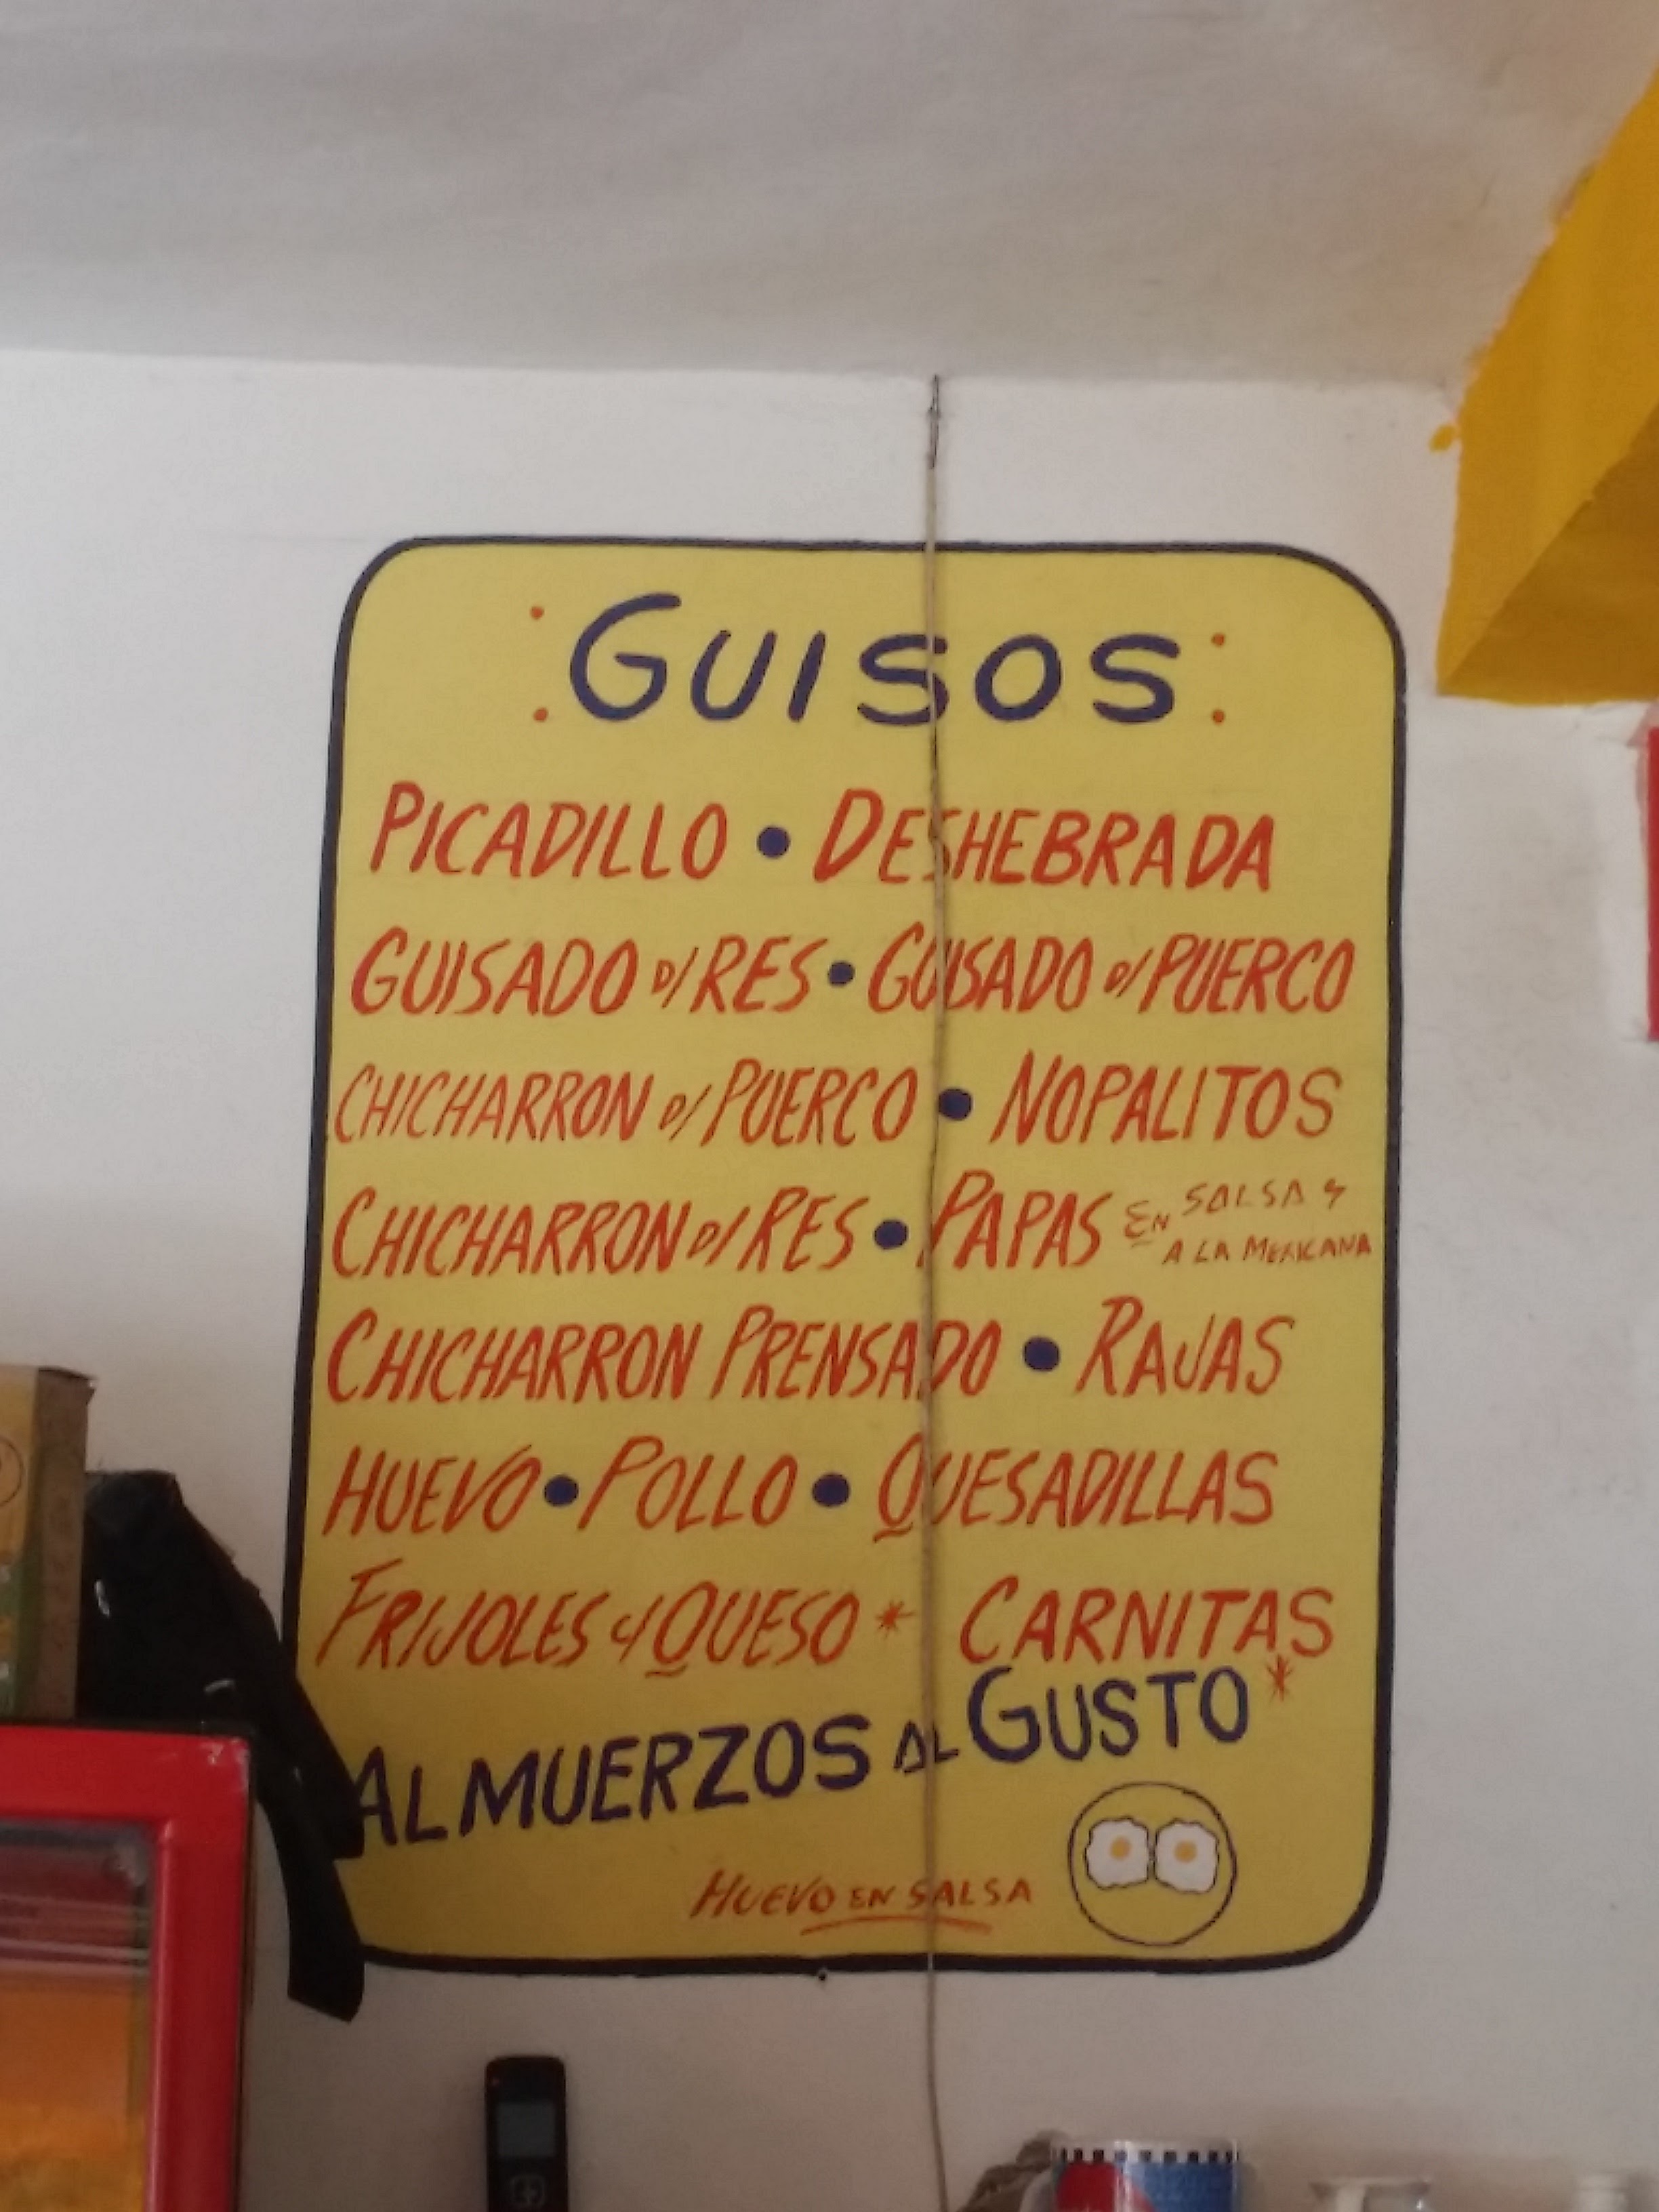 : GUISOS :
PICADILLO • DESHEBRADA
GUISADO D/ RES • GUISADO D/ PUERCO
CHICHARRON D/ PUERCO • NOPALITOS
CHICHARRON D/ RES • PAPAS EN SALSA Y
A LA MEXICANA
CHICHARRON PRENSADO • RAJAS
HUEVO • POLLO • QUESADILLAS
FRIJOLES C/ QUESO * CARNITAS *
ALMUERZOS AL GUSTO
HUEVO EN SALSA